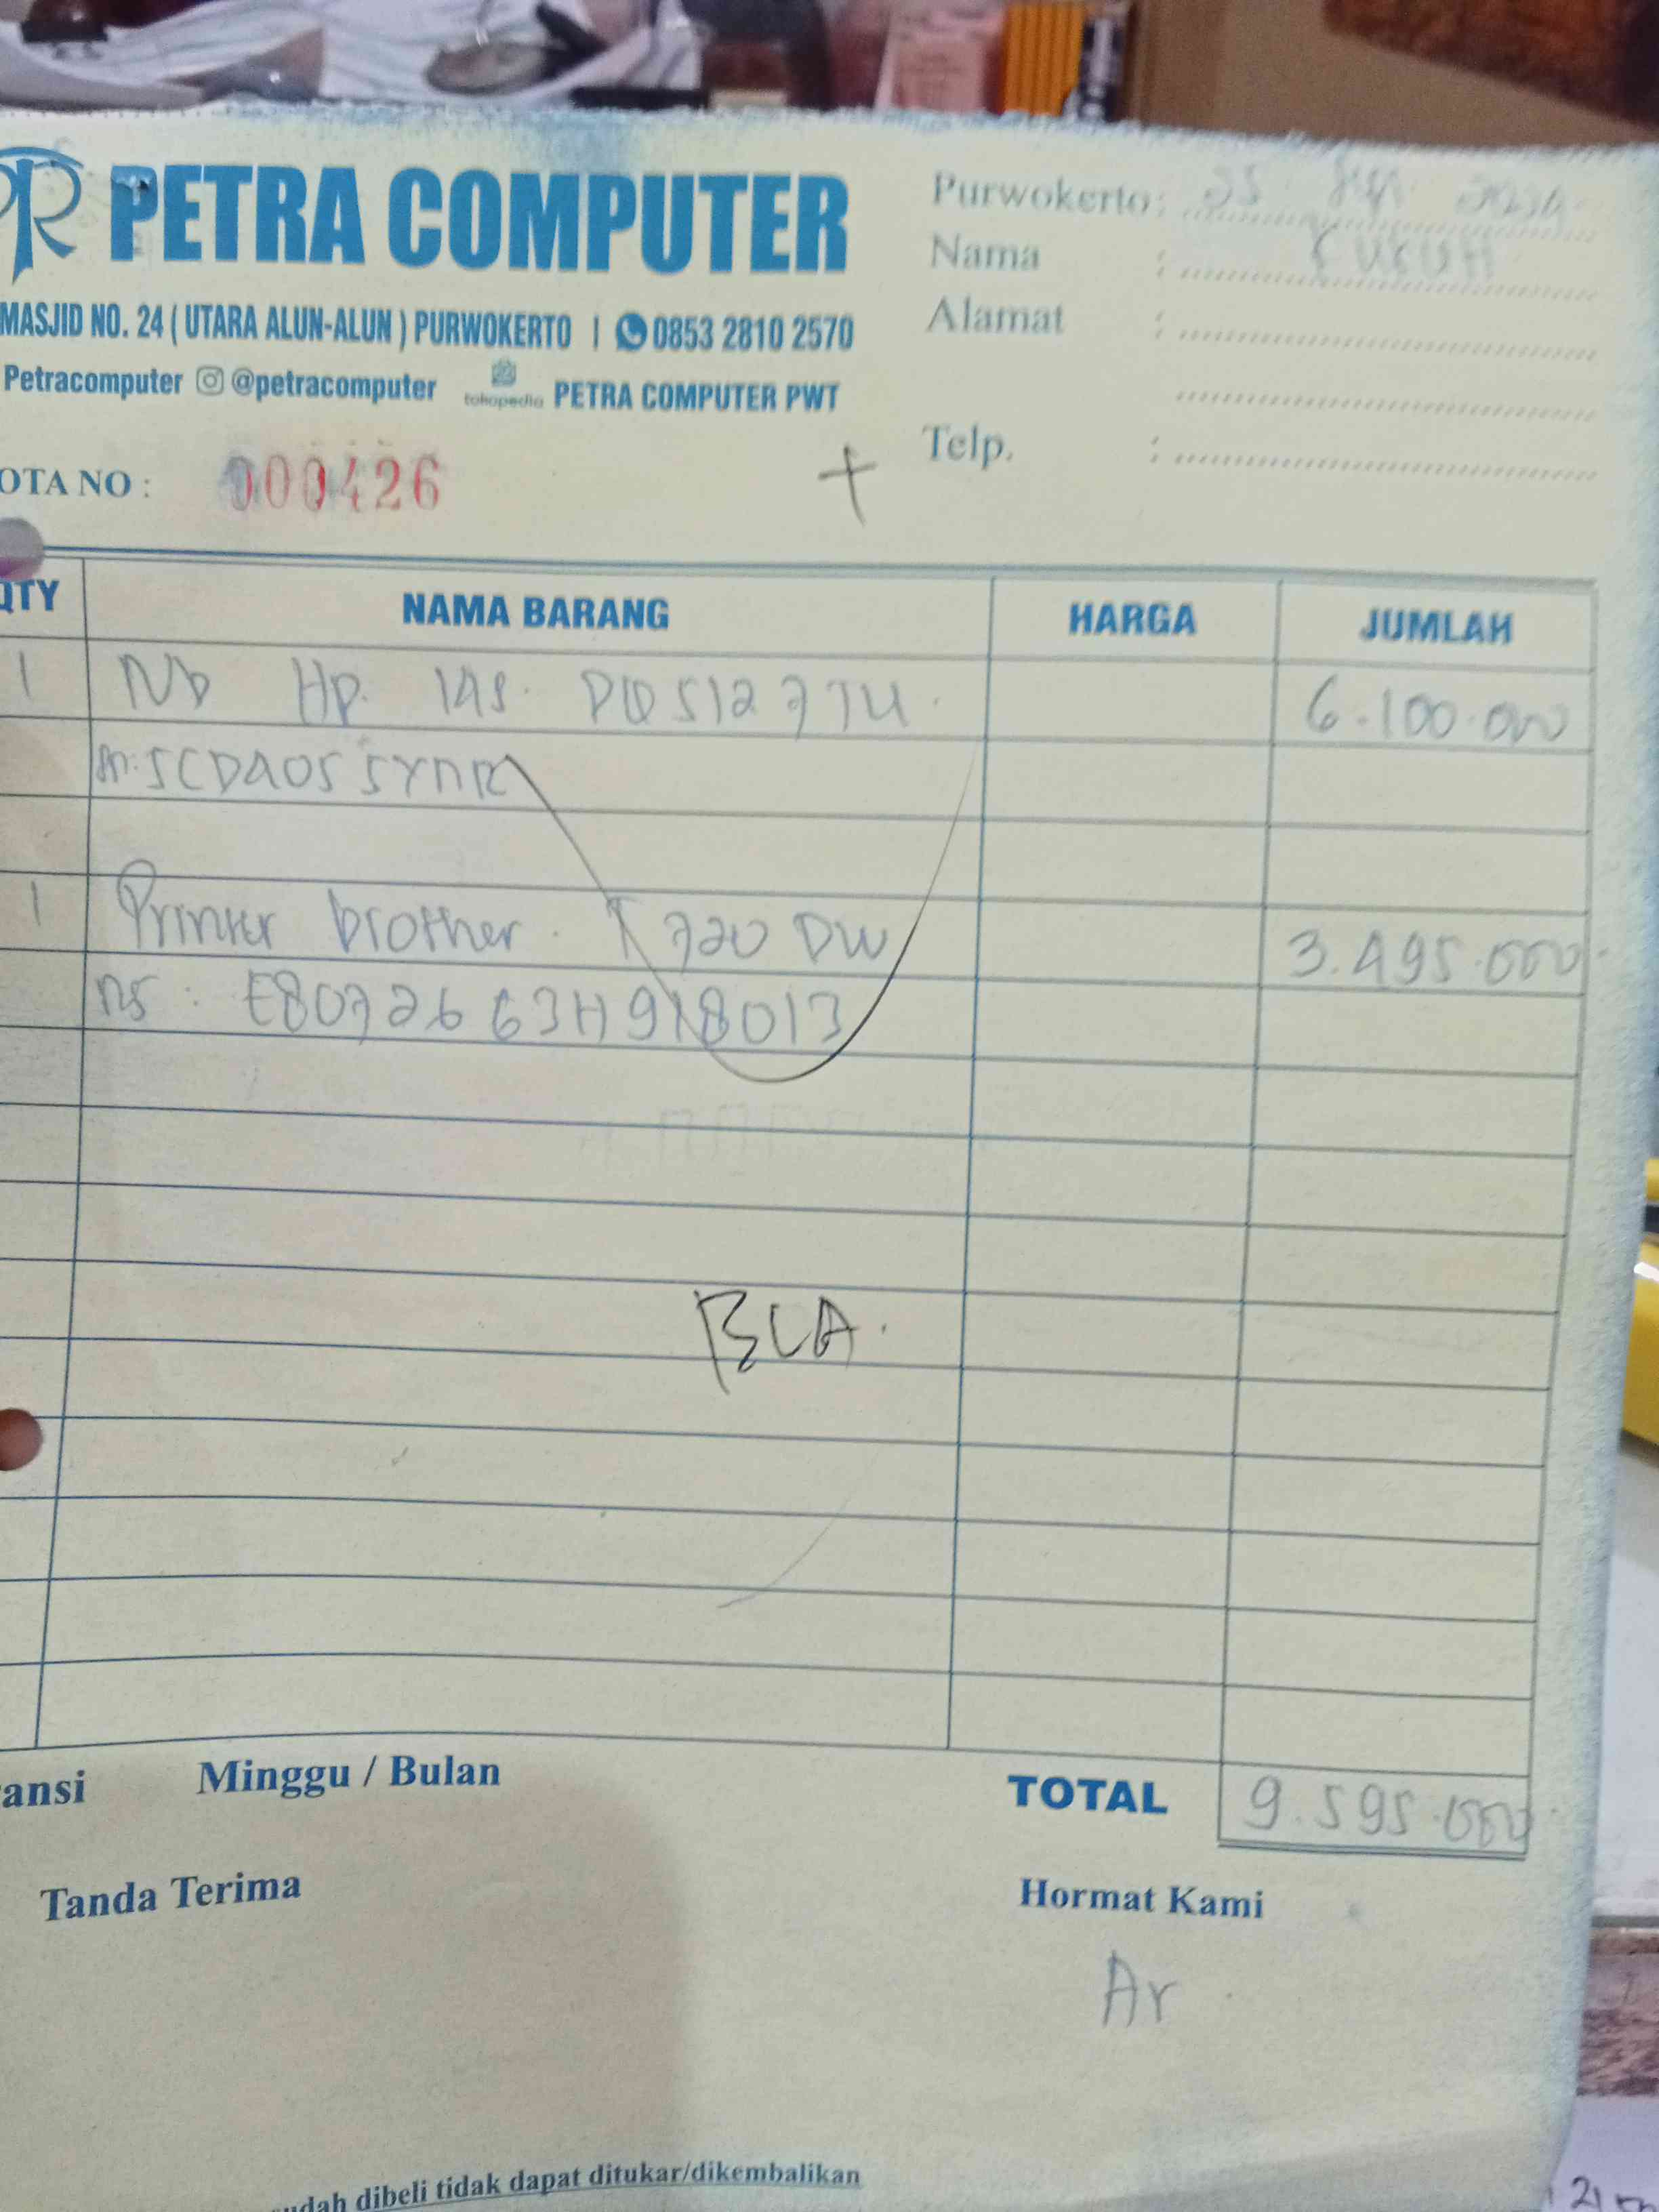 PETRA COMPUTER
MASJID NO. 24 ( UTARA ALUN-ALUN ) PURWOKERTO | 0853 2810 2570
Petracomputer @petracomputer tokopedia PETRA COMPUTER PWT
Purwokerto :
Nama :
Alamat :
Telp. :
OTA NO : 000426
QTY NAMA BARANG HARGA JUMLAH
1 Nb Hp 14s. DQ5127TU. 6.100.000
1 Printer brother. T 720 DW 3.495.000
ns : E8072663H918013
BCA.
ansi Minggu / Bulan
TOTAL 9.595.000
Tanda Terima
Hormat Kami
Ar
udah dibeli tidak dapat ditukar/dikembalikan